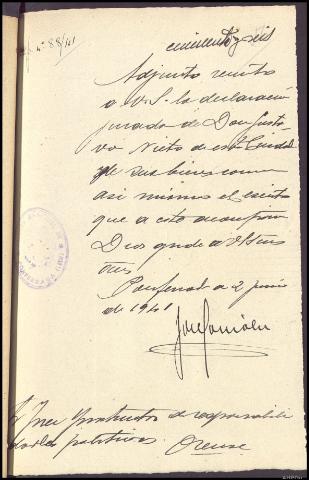 nº 88/141
cincuenta y seis
Adjunto remito
a V.S. la declaracion
jurada de Don Gusta
vo Nieto de esta Ciudad
de sus bienes como
asi mismo el escrito
que a esta acompaña
Dios gude a V.S. mu
Ponferrada 2 junio
de 1941
José González
Sr Juez Instructor de responsabili
dades politicas. Orense